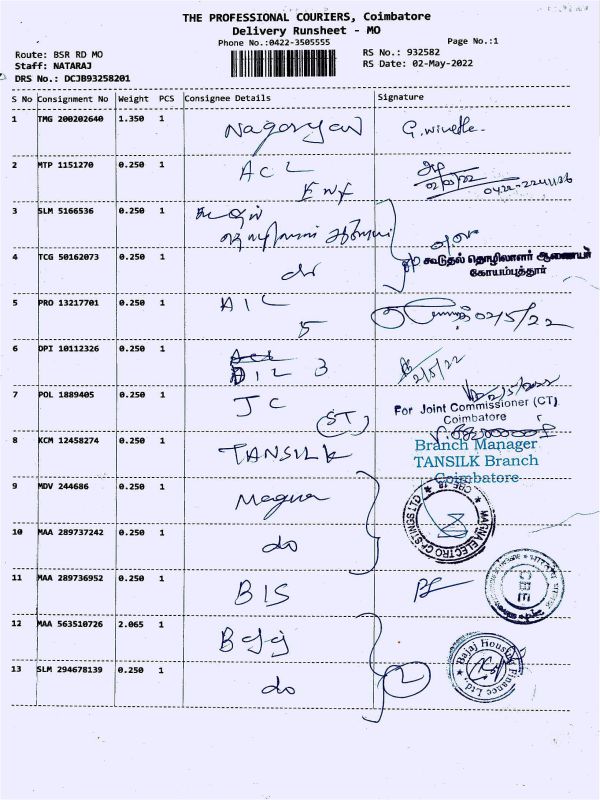 THE PROFESSIONAL COURIERS, Coimbatore
Delivery Runsheet - MO
Phone No.:0422-3505555
Page No.:1
Route: BSR RD MO
RS No.: 932582
Staff: NATARAJ
RS Date: 02-May-2022
DRS No.: DCJB93258201
S No Consignment No Weight PCS Consignee Details Signature
1 TMG 200202640 1.350 1
2 MTP 1151270 0.250 1 ACL
3 SLM 5166536 0.250 1
4 TCG 50162073 0.250 1 do
கூடுதல் தொழிலாளர் ஆணையர்
கோயம்புத்தூர்
5 PRO 13217701 0.250 1 AIL 02/5/22
5
6 DPI 10112326 0.250 1 DIL 3 2/5/22
7 POL 1889405 0.250 1 JC
(ST)
For Joint Commissioner (CT)
Coimbatore
8 KCM 12458274 0.250 1 TANSILK
Branch Manager
TANSILK Branch
Coimbatore
9 MDV 244686 0.250 1 Magna
10 MAA 289737242 0.250 1 do
11 MAA 289736952 0.250 1 BIS
CBE
12 MAA 563510726 2.065 1 Bajaj
13 SLM 294678139 0.250 1 do
Bajaj Housing Finance Ltd.